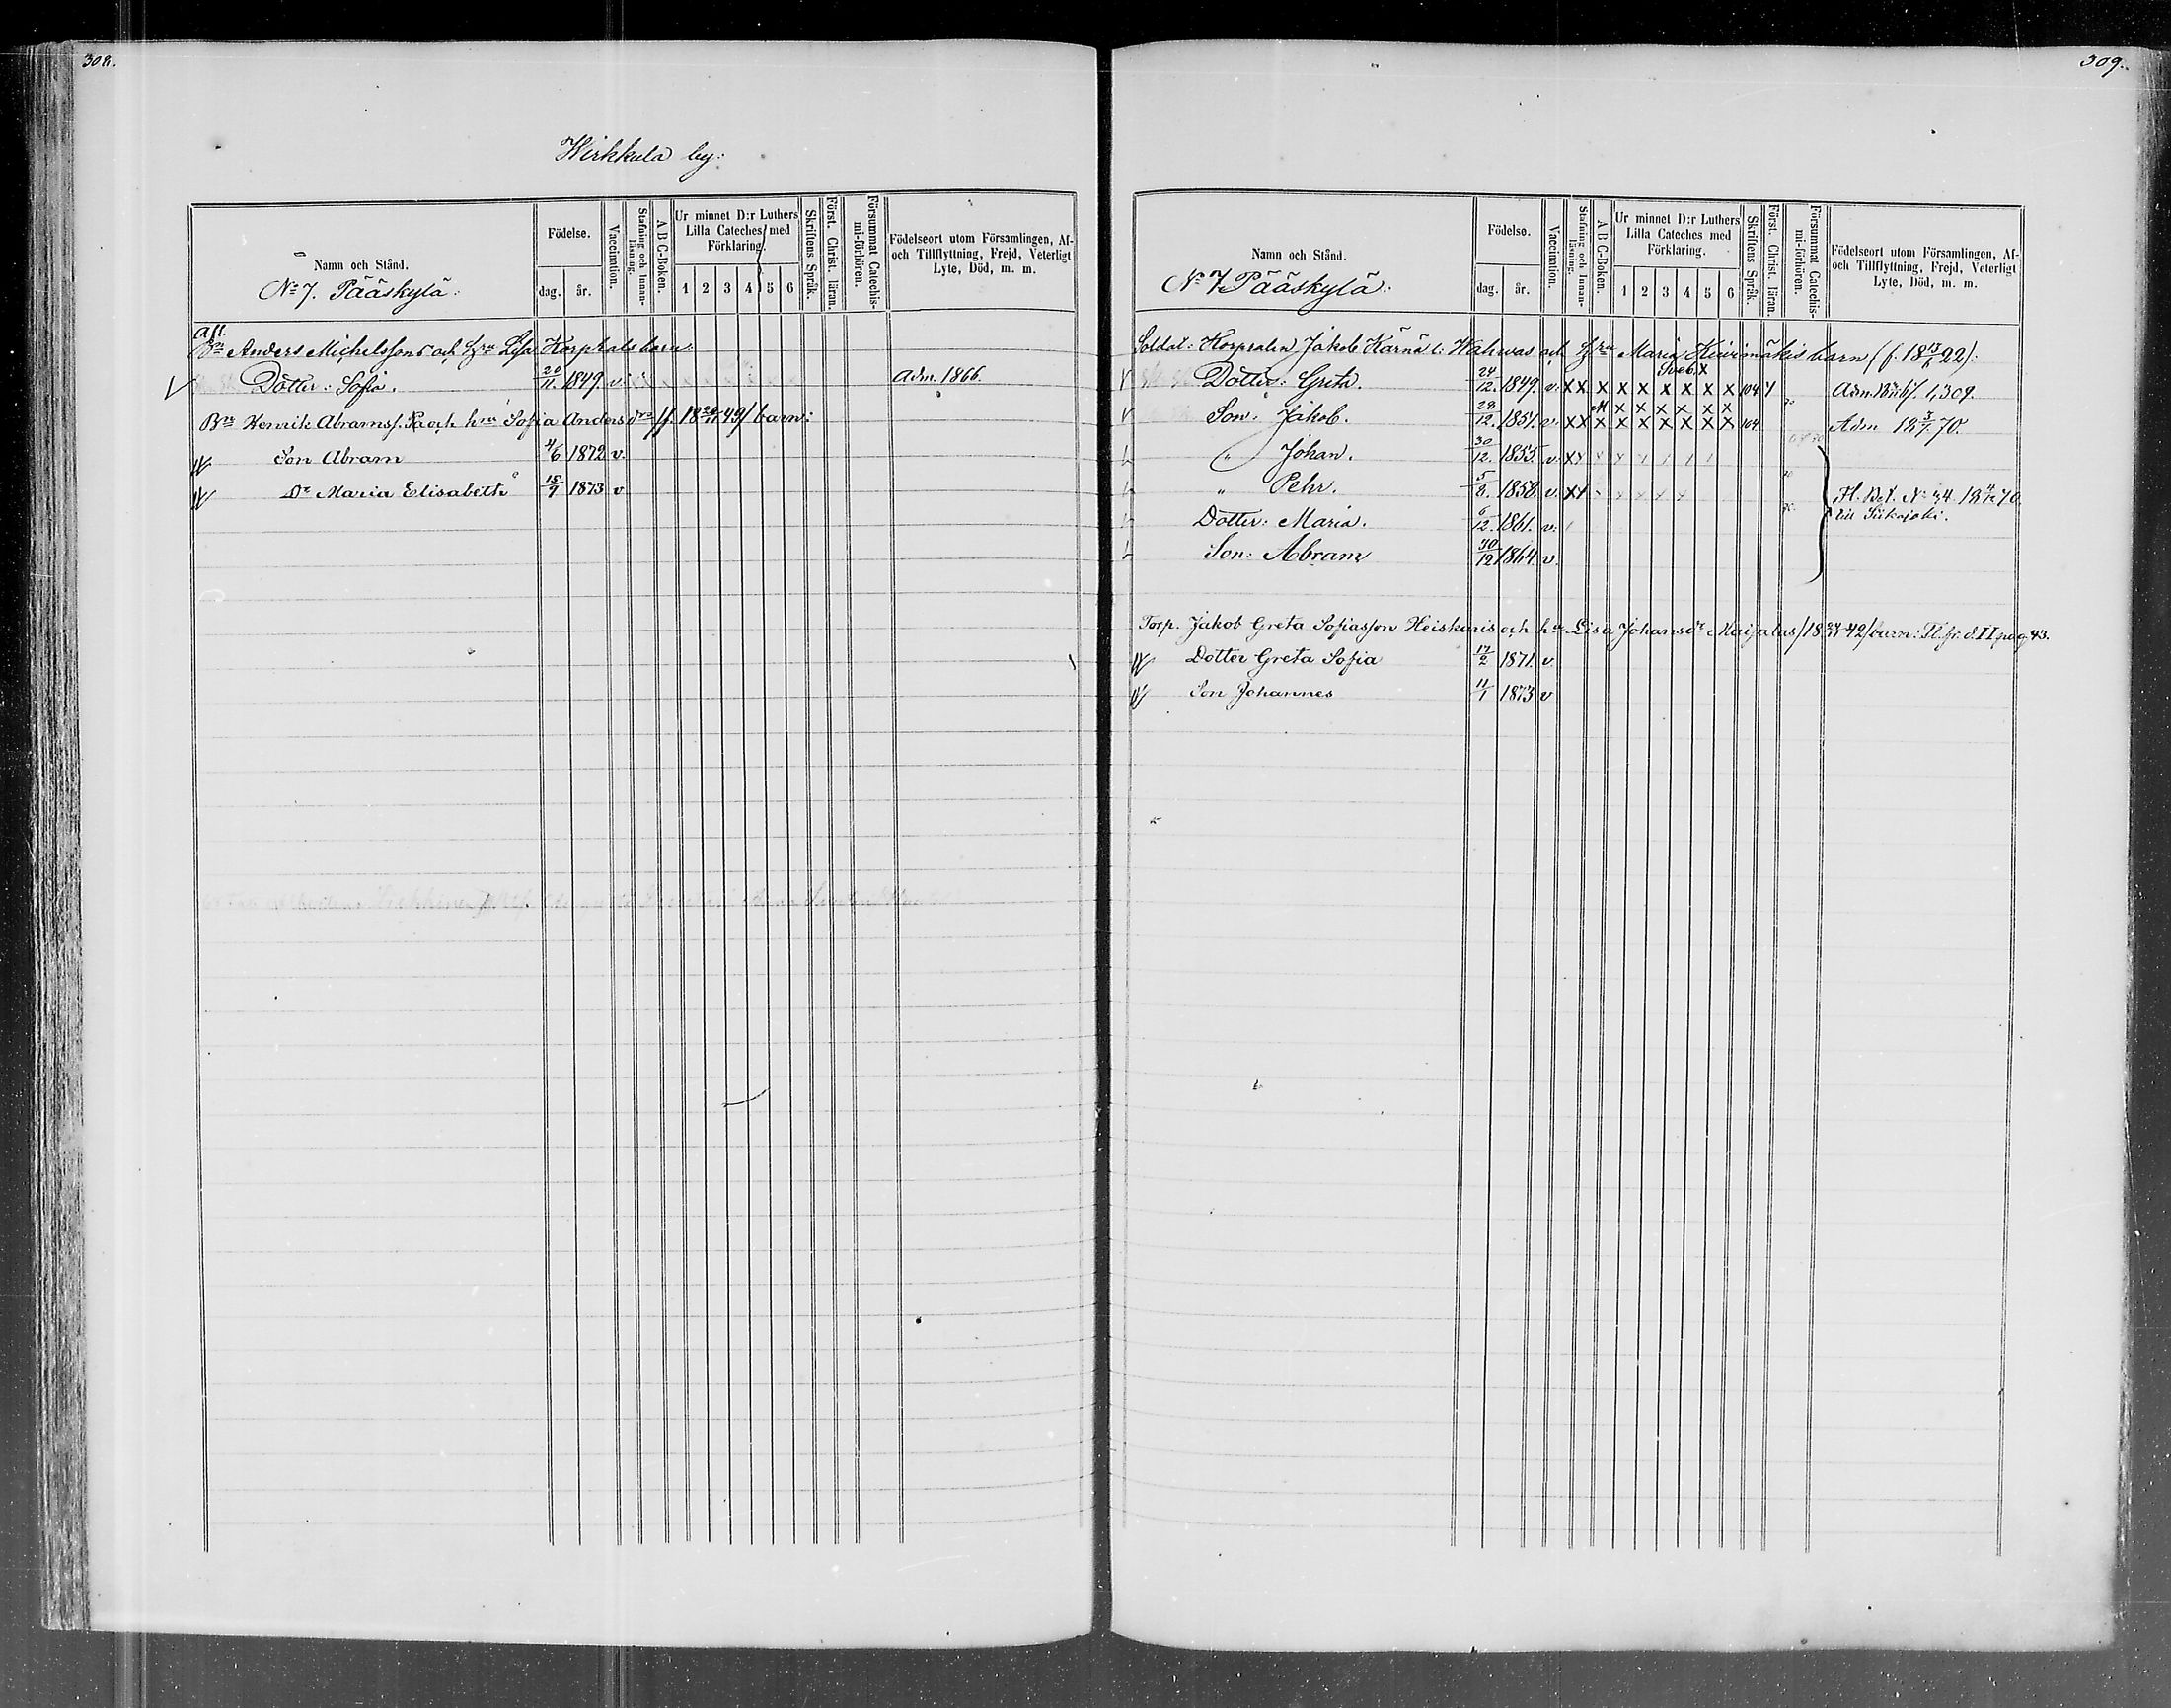 308.
Wirkkula by:
Namn och Stånd.
No 7. Pääskylä:
Födelse.
dag. år.
Vaccination.
Stafning och Innan-läsning.
A B C-Boken.
Ur minnet D:r Luthers
Lilla Cateches med
Förklaring.
1 2 3 4 5 6
Skriftens Språk.
Först. Christ. läran.
Försummat Catechis-mi-förhören.
Födelseort utom Församlingen, Af-
och Tillflyttning, Frejd, Veterligt
Lyte, Död, m. m.
Afl.
Bn Anders Michelsson och Hru Lisa barn:
Dotter: Sofia. 20/11. 1849. v. Adm. 1866.
Bn Henrik Abramss. och hru Sofia Andersdr /f. 49/ barn:
Son Abram 4/6 1872 v.
Dr Maria Elisabeth 15/9 1873 v
309.
Namn och Stånd.
No 7 Pääskylä:
Födelse.
dag. år.
Vaccination.
Stafning och Innan-läsning.
A B C-Boken.
Ur minnet D:r Luthers
Lilla Cateches med
Förklaring.
1 2 3 4 5 6
Skriftens Språk.
Först. Christ. läran.
Försummat Catechis-mi-förhören.
Födelseort utom Församlingen, Af-
och Tillflyttning, Frejd, Veterligt
Lyte, Död, m. m.
Soldat: Korpralen Jakob Kärnä l. Wahwas och Hru Maria Kiwimäkis barn (f. 22):
Dotter: Greta. 24/12. 1849. v. X X X X X X X X X 104 1,309.
Son: Jakob. 28/12. 1851. v. X X X X X X X X X 104 Adm 70.
" Johan. 30/12. 1855. v. X X
" Pehr. 5/8. 1858. v. X X Fl. Bet. No 34 70
Dotter: Maria. 6/12. 1861. v. till Siikajoki.
Son: Abram 30/12 1864. v.
Torp. Jakob Greta Sofiasson Heiskaris och hru Lisa Johansdr /42/ barn: Fl. fr. d. II pag. 43.
Dotter Greta Sofia 17/2 1871. v.
Son Johannes 11/1 1873 v